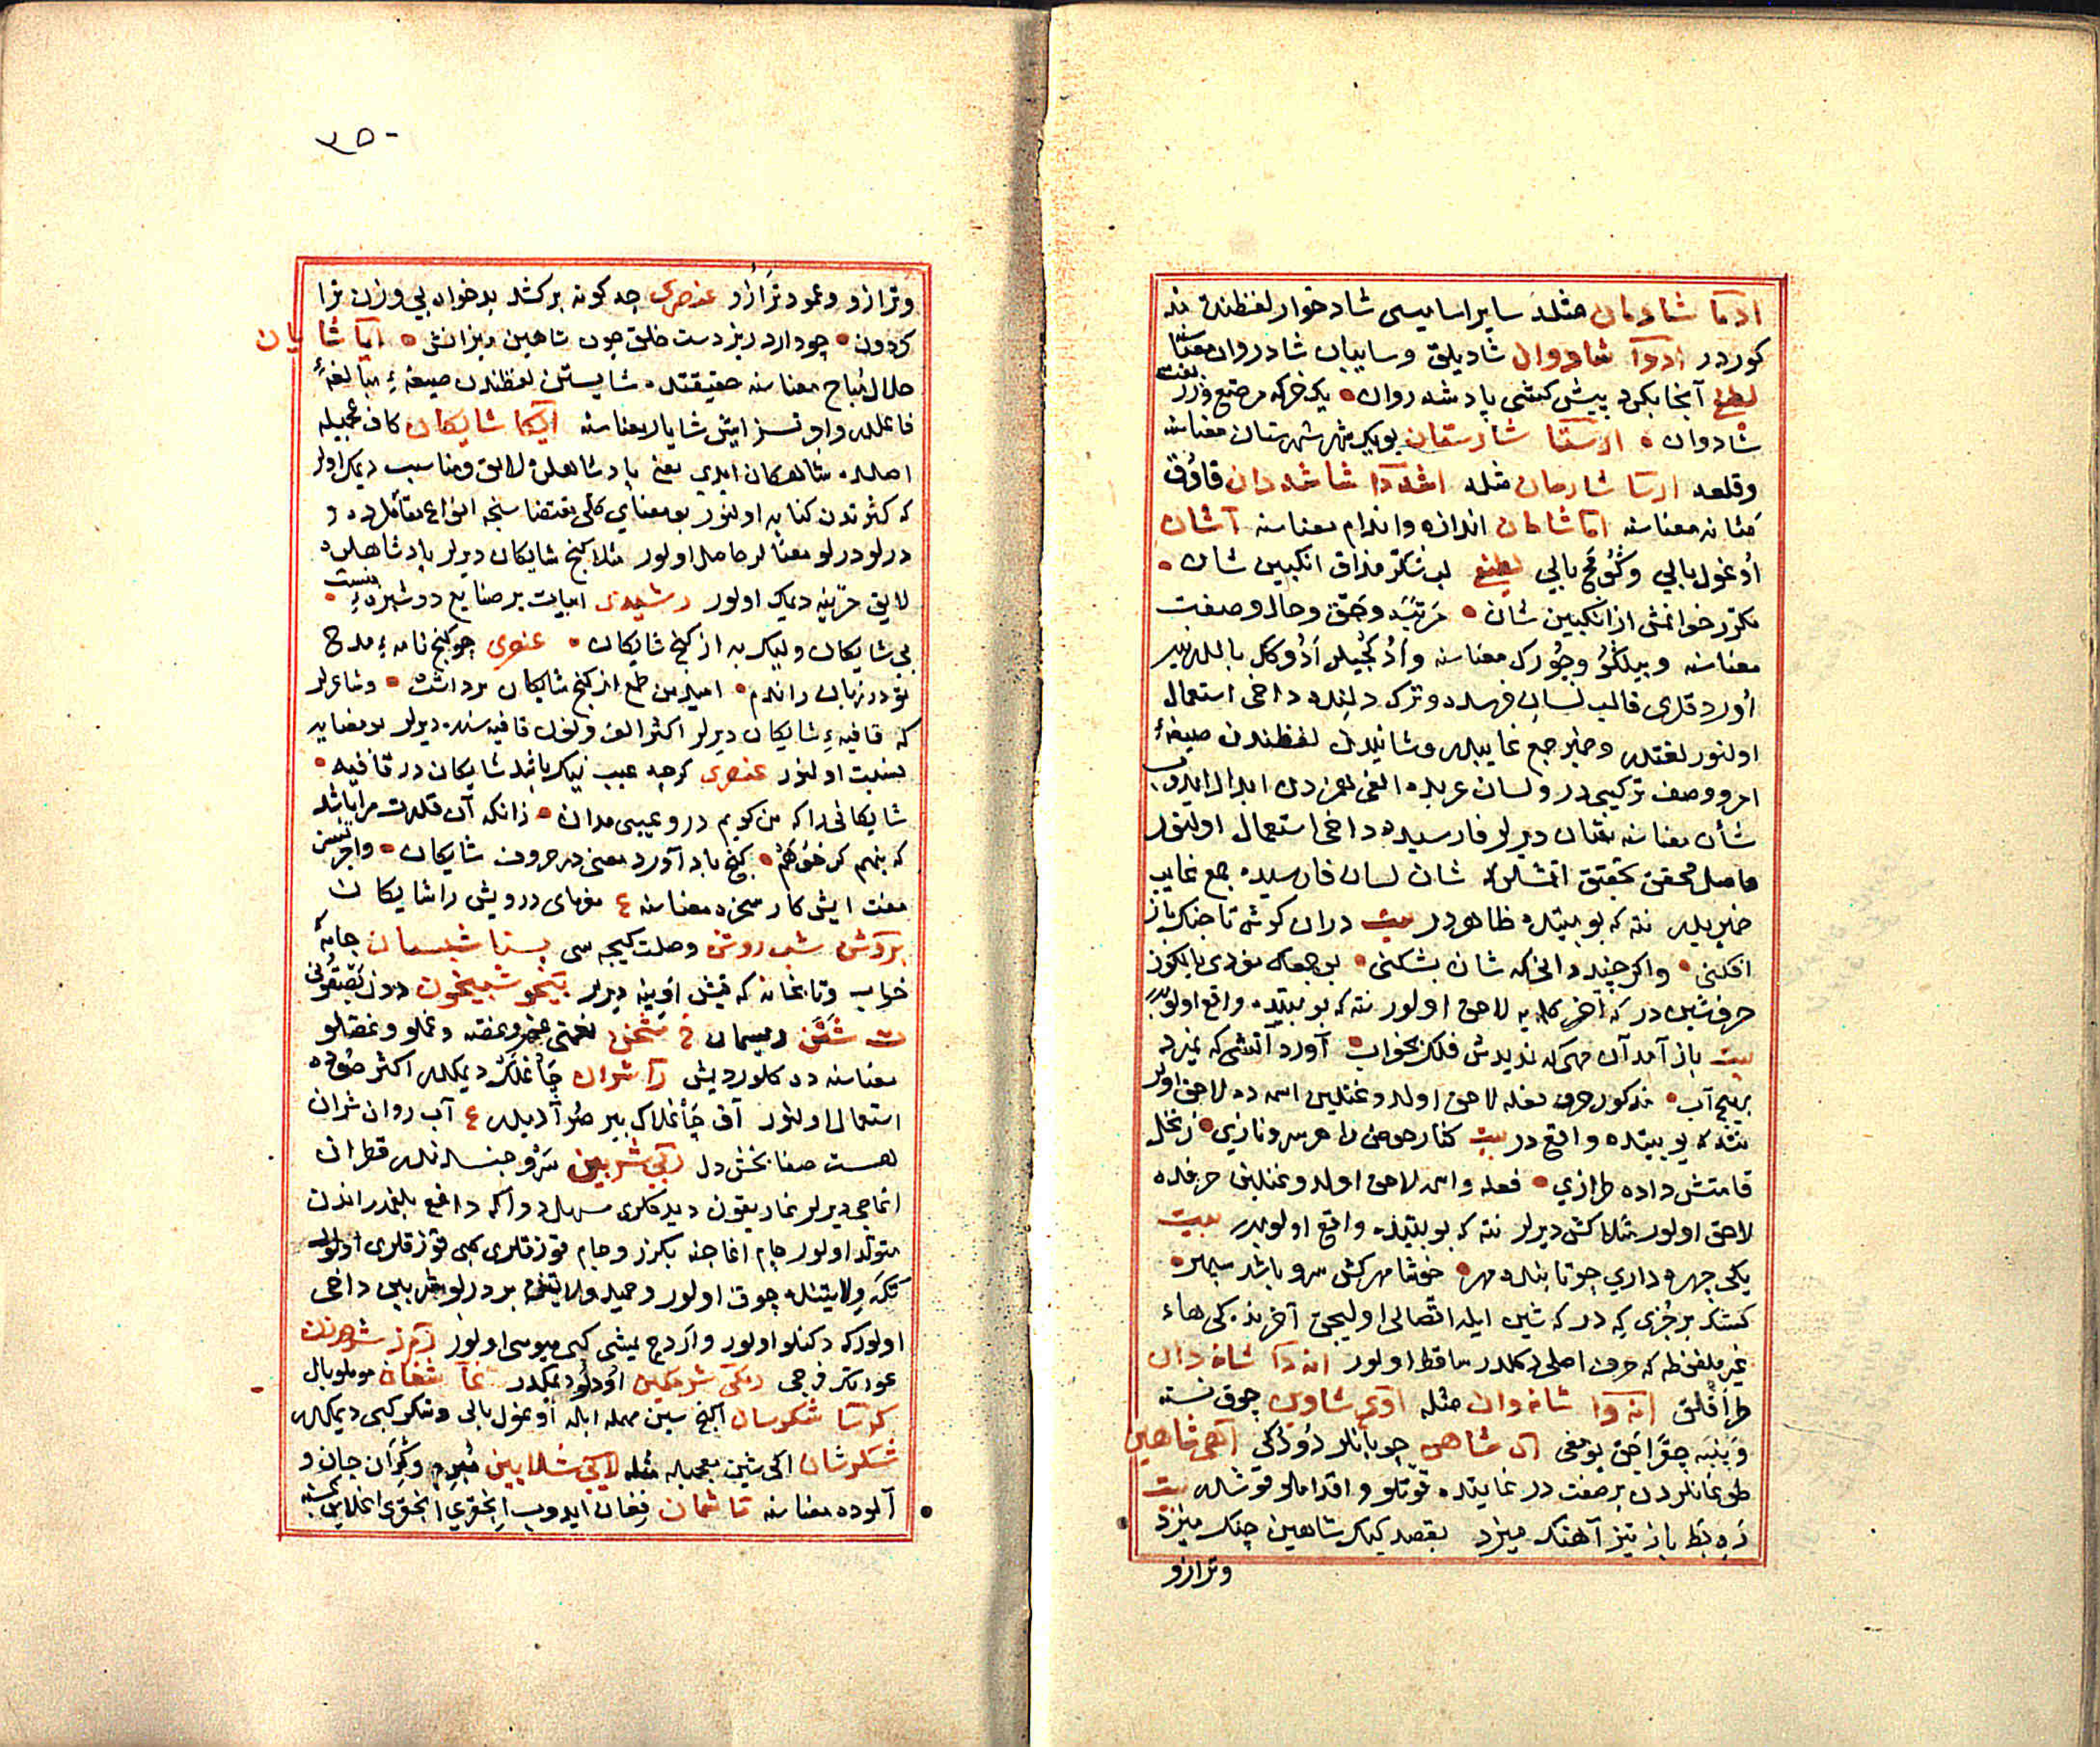 ادما شادمان مثله سایر اسامیسی شادخوار لفظنده در
کوردر ادروا شادروان شادیلق وسایبان شادروان معناسنه
لطیفی آنجا بکرد پیش کشی یاد شدروان یک خرکه مرصع وزربفت
شادوان ارستا شارستان بویک شهر شهرستان معناسنه
وقلعه ارسا شارسان مثله اشددا شاشه دان قاوق
مثانه معناسنه اما شامان اندازه واندام معناسنه آشان
اوغول بالی وکوج بالی لطیفی لب شکر مذاق انکبین شان
مکرر خوانمش از انکبین شان مرتبه وحق وحال وصفت
معناسنه وبیلکو وچورک معناسنه
اوردقلری قالب لسان فرسده وترک دلنده داخی استعمال
اولنور لغتدر وضمیر جمع غایبدر وشانیدن لفظندن صیغهٔ
امر ووصف ترکیبیدر ولسان عربده الفی همزه دن ابدال ایدوب
شأن معناسنه شان دیرلر فارسیده داخی استعمال اولنور
حاصل محقق تحقیق اتمشلر که شان لسان فارسیده جمع غایب
ضمیریدر نته که بو بیتده ظاهردر بیت دران کوش تا جنک باز
افکنی واکر چند دانی که شان بشکنی
حرف شین در که آخر کلمه یه لاحق اولور نته که بو بیتده واقع اولوبدر
بیت باز آمد آن مهی که ندیدش فلک بخواب آورد آتشی که نمیرد
بهیچ آب مذکور حرف فعله لاحق اولدوغنلین اسمه ده لاحق اولور
نته که بو بیتده واقع در بیت کنار حوض را هر سرو نازی ز نخل
قامتش داده طرازی فعله واسمه لاحق اولدوغنلین حرفه ده
لاحق اولور مثلا کش دیرلر نته که بو بیتده واقع اولوبدر بیت
یکی چهره داری چو تابنده مهر خوشا مهر کش سرو باشد سپهر
کسنک بر جزی که در که شین ایله اتصالی اولیجق آخرنده کی هاء
غیر ملفوظه که حرف اصلی دکلدر ساقط اولور انه دا شانه دان
طراقلق انه وا شانه وان مثله اوی شاوین چوق نسنه
آهی شاهین
طوغانلردن بر صفت در غایتده قوتلو واقداملو قوشدر بیت
زه بط باز تیز آهنک میزد بقصد کبک شاهین چنک میزد
وترازو
۲۵۰
وترازو وعمود ترازو عنصری چه کونه برکشد بدخواه بی وزن ترا
کردون چو دارد زیر دست خلق چون شاهین میزانش اما شایان
حلال مباح معناسنه حقیقتده شایستن لفظندن صیغهٔ مبالغهٔ
فاعلدر واوتسز ایش شایان معناسنه ایکا شایکان کاف عجمیله
اصلده شاهکان ایدی یعنی پادشاهلره لایق ومناسب دیمک اولور
که کثرتدن کنایه اولنور بو معنای کلی مقتضاسنجه انواع مقاملرده
درلو درلو معنالر حاصل اولور مثلا کنج شایکان دیرلر پادشاهلره
لایق خزینه دیمک اولور رشیدی ابیات پر صنایع دوشیزه منست
بی شایکان ولیک به از کنج شایکان عنصری چو کنج نامهٔ مدح
تو در زبان راندم امید من طمع از کنج شایکان برداشت وشاعرلر
که قافیهٔ شایکان دیرلر اکثر الف ونون قافیه سنه دیرلر بو معنایه
نسبت اولنور عنصری کرچه عیب نیک باشد شایکان در قافیه
شایکانی را که من کویم درو عیبی مدان زانکه آن قدرت مرا باشد
که بنهم کر خواهم کنج باد آورد معنی در حروف شایکان واجرتسز
مفت ایش کار سخره معناسنه ع مفرمای درویش را شایکان
برکش شب روشن وصلت کیجه سی بستا شبستان جامهٔ
خواب وتابخانه که قیش اوینه دیرلر بیخو شبیخون دون بصقونی
ت شتن ریسمان
معناسنه ده کلوردیش را شران چاغلک دیمکدر اکثر صوده
استعمال اولنور آقر چاغلاک بیر صو آدیدر ع آب روان شران
هست صفا بخش دل ربی شربین سرو جنسندندر قطران
اغاجی دیرلر
متولد اولور جام اغاجنه بکزر وجام قوزقلری کبی قوزقلری اولور
تکه ولایتنده چوق اولور وحمید ولایتنده بر درلو شربین داخی
اولور که دکنلو اولور واردج یمیشی کبی میوسی اولور رمز شرمزن
عورتک فرجی رمکی شرمکین اودلو دیمکدر غا شغان موملو بال
کرسا شکرسان آنج سین مهمله ایله اوغول بالی وشکر کبی دیمکدر
شکرشان اکی شین معجمه ایله مثله لابی شلابین مبرم وکران جان و
آلوده معناسنه ما شمان فغان ایدوب